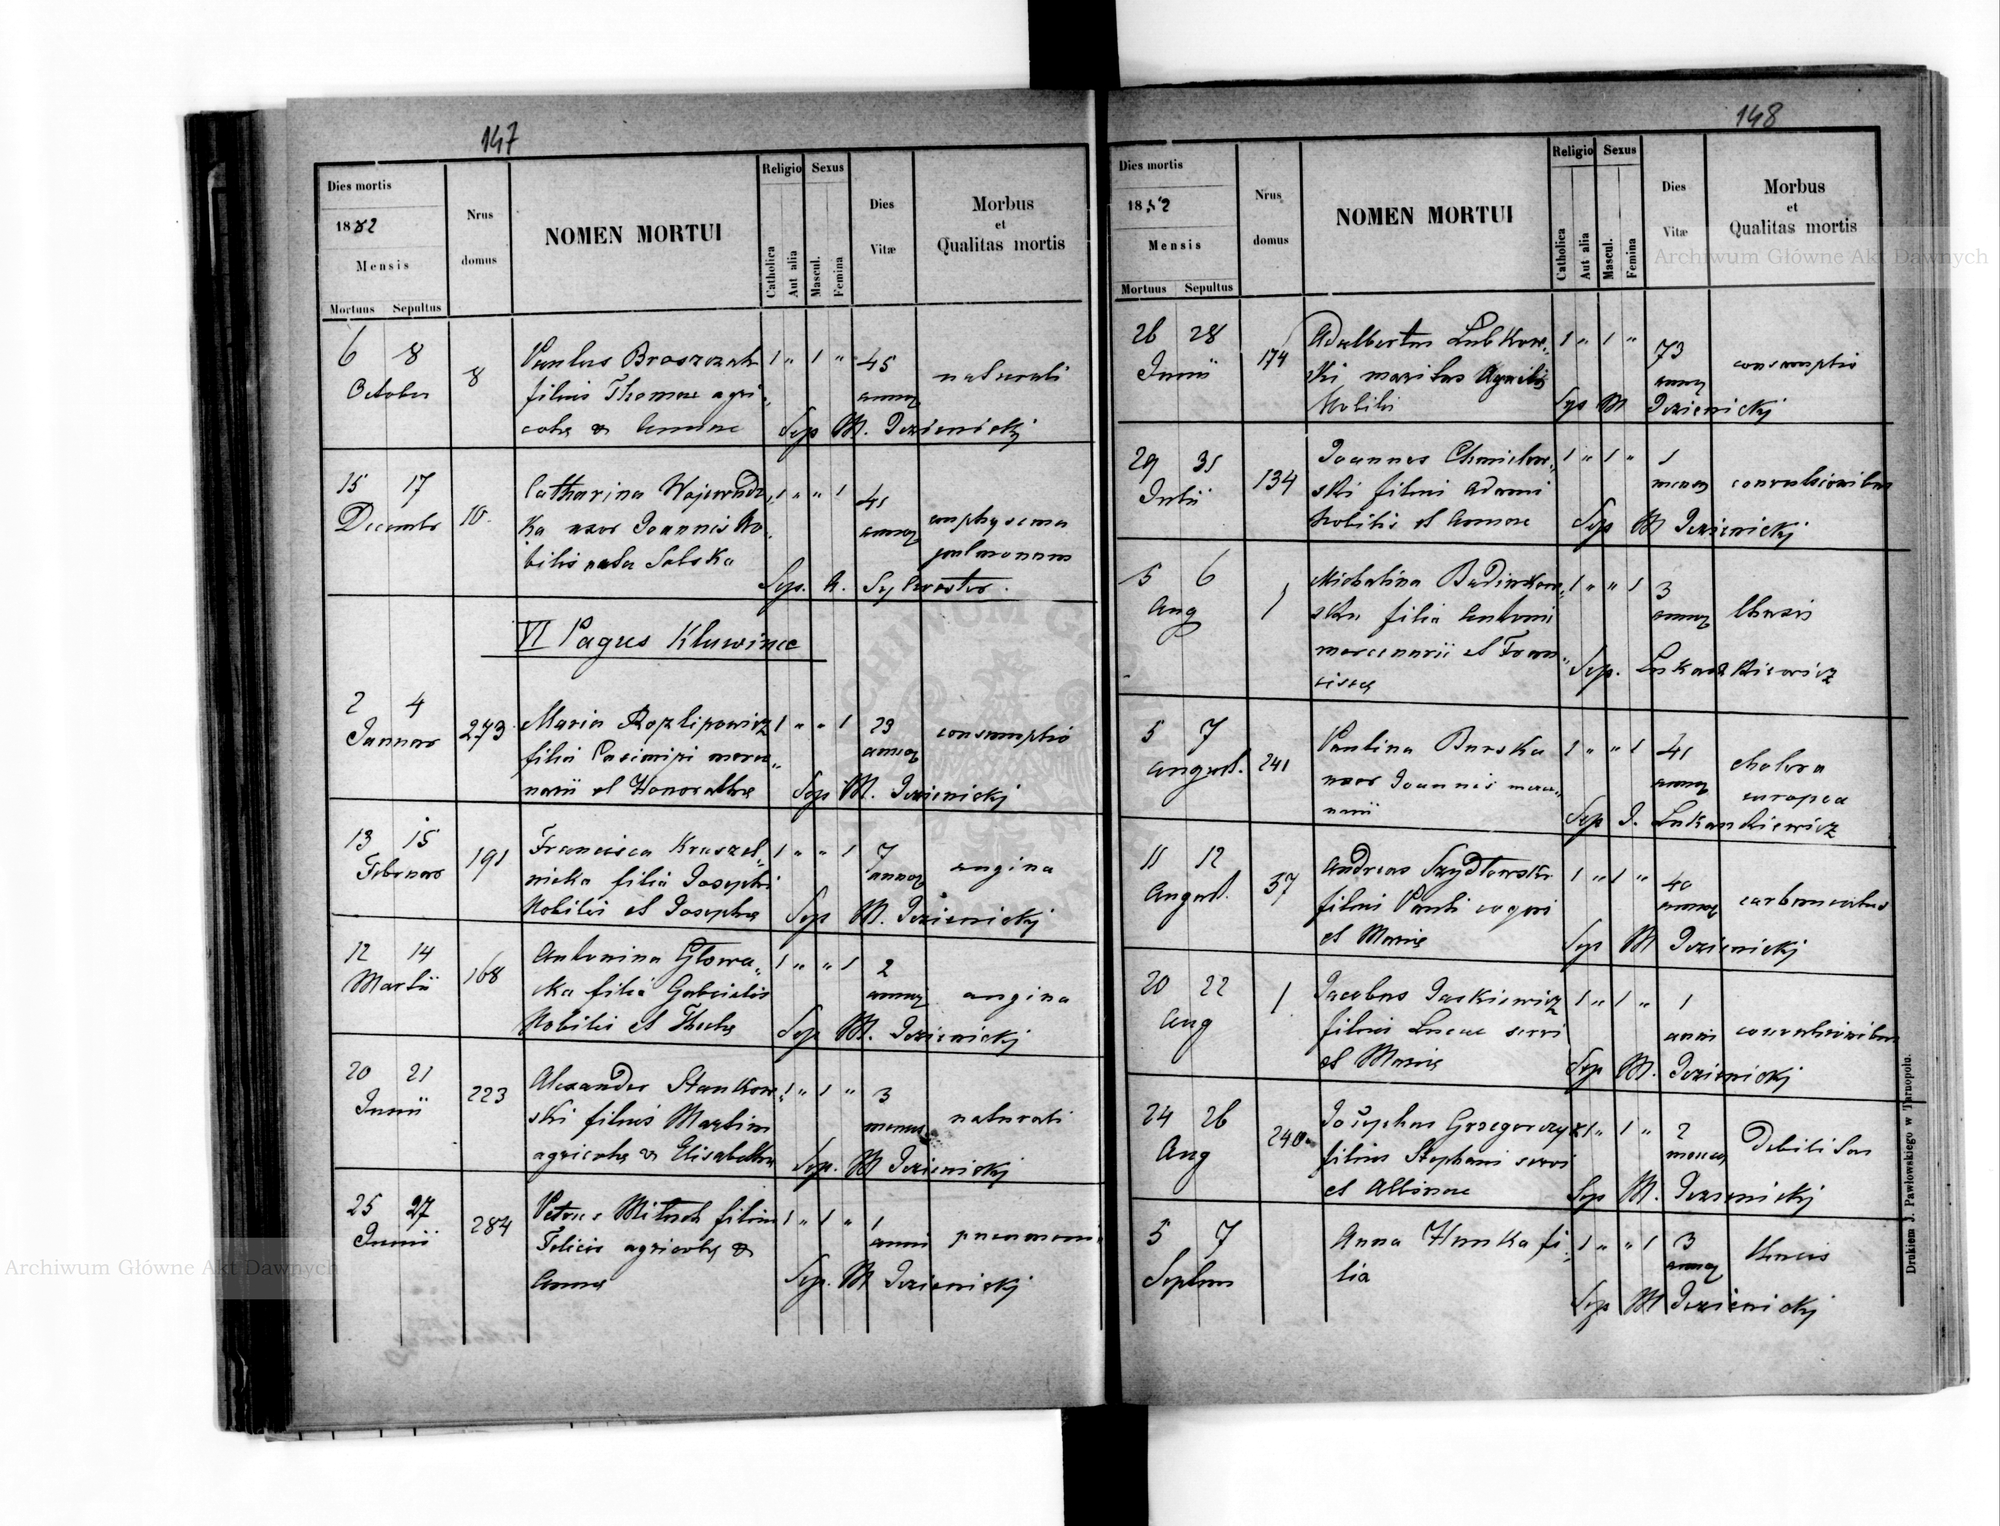 147
Dies mortis
1882
Mensis
Mortuus Sepultus
Nrus
domus
NOMEN MORTUI
Religio
Catholica
Aut alia
Sexus
Mascul.
Femina
Dies
Vitæ
Morbus
et
Qualitas mortis
6 8
October
8
Paulus Broszczak
filius Thomae agri„
colae & Annae
1 „ 1 „
45
annor
naturali
Sep M. Jezienickj
15 17
Decembr
10.
Catharina Wojewudz„
ka uxor Joannis No„
bilis nata Solska
1 „ „ 1
41
annor
emphysema
pulmonum
Sep. A. Sylwester.
VI Pagus Kluwince
2 4
Januar
273
Maria Rozlipowicz
filia Casimiri merce„
narii et Honorathae
1 „ „ 1
23
annor
consumptio
Sep M. Jezienickj
13 15
Februar
191
Francisca Kraszel„
nicka filia Josephi
Nobilis et Josephae
1 „ „ 1
7
annor
angina
Sep M. Jezienickj
12 14
Martii
168
Antonina Głowa„
cka filia Gabrielis
Nobilis et Theclae
1 „ „ 1
2
annor
angina
Sep M. Jezienickj
20 21
Junii
223
Alexander Stankow„
ski filius Martini
agricolae & Elisabethae
1 „ 1 „
3
menses
naturali
Sep. M Jezienickj
25 27
Junii
284
Petrus Mitusch filius
Felicis agricolae &
Annae
1 „ 1 „
1
anni
pneumoni„
Sep. M Jezienickj
148
Dies mortis
1882
Mensis
Mortuus Sepultus
Nrus
domus
NOMEN MORTUI
Religio
Catholica
Aut alia
Sexus
Mascul.
Femina
Dies
Vitæ
Morbus
et
Qualitas mortis
26 28
Junii
174
Adalbertus Lubkow„
ski maritus
Nobilis
1 „ 1 „
73
annor
consumptio
Sep M Jezienickj
29 31
Julii
134
Joannes Chmielow„
ski filius Adami
Nobilis et Annae
1 „ 1 „
1
mensis
convulsionibus
Sep M Jezienickj
5 6
Aug
1
Michalina Budinkow„
ska filia Antoni
mercenarii et Fran„
ciscae
1 „ „ 1
3
annor
thusis
Sep. Lukaszkiewicz
5 7
August.
241
Paulina Burska
uxor Joannis merce„
narii
1 „ „ 1
41
annor
cholera
europea
Sep J. Lukaszkiewicz
11 12
August.
37
Andreas Szydłowski
filius Pauli
et Mariae
1 „ 1 „
40
annor
carbunculus
Sep M Jezienickj
20 22
Aug
1
Jacobus Jaskiewicz
filius Lucae servi
et Mariae
1 „ 1 „
1
anni
convulsionibus
Sep M. Jezienickj
24 26
Aug
240
Josephus Grzegorczyk
filius Stephani servi
et Albinae
1 „ 1 „
2
menses
Debilitas
Sep M. Jezienickj
5 7
Septem
Anna Hunka fi„
lia
1 „ „ 1
3
annor
thusis
Sep M Jezienickj
Drukiem J. Pawłowskiego w Tarnopolu.
Archiwum Główne Akt Dawnych
Archiwum Główne Akt Dawnych